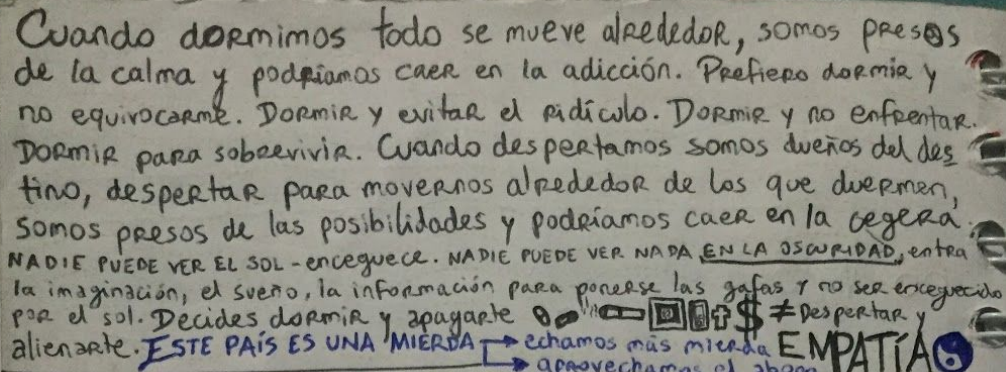 Cuando dormimos todo se mueve alrededor, somos presos
de la calma y podríamos caer en la adicción. Prefiero dormir y
no equivocarme. Dormir y evitar el ridículo. Dormir y no enfrentar.
Dormir para sobrevivir. Cuando despertamos somos dueños del des
tino, despertar para movernos alrededor de los que duermen,
somos presos de las posibilidades y podríamos caer en la cegera.
NADIE PUEDE VER EL SOL - enceguece. NADIE PUEDE VER NADA EN LA OSCURIDAD, entra
la imaginación, el sueño, la información para ponerse las gafas y no ser enceguecido
por el sol. Decides dormir y apagarte $ ≠ Despertar y
alienarte. ESTE PAÍS ES UNA MIERDA → echamos más mierda EMPATÍA
→ aprovechamos el abono